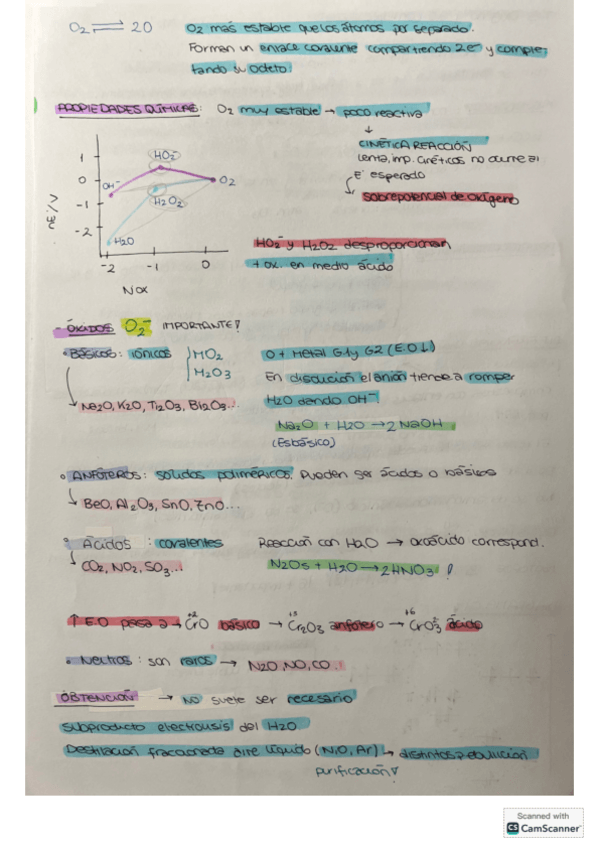 O₂ ⇌ 2O
O₂ más estable que los átomos por separado.
Forman un enlace covalente compartiendo 2e⁻ y comple-
tando su octeto.
PROPIEDADES QUÍMICAS: O₂ muy estable → poco reactiva
↓
CINÉTICA REACCIÓN
lenta, imp. cinéticos no ocurre al
E° esperado
↳ sobrepotencial de oxígeno
nE°/V
1
0
-1
-2
HO₂⁻
OH⁻
O₂
H₂O₂
H₂O
-2 -1 0
NOX
HO₂⁻ y H₂O₂ desproporcionan
+ ox. en medio ácido
- ÓXIDOS O₂⁻ IMPORTANTE!
• BÁSICOS: iónicos
MO₂
M₂O₃
O + Metal G1 y G2 (E.O.↓)
En disolución el anión tiende a romper
H₂O dando OH⁻
Na₂O + H₂O → 2NaOH
(Es básico)
↳ Na₂O, K₂O, Ti₂O₃, Bi₂O₃...
• ANFÓTEROS: sólidos poliméricos. Pueden ser ácidos o básicos
↳ BeO, Al₂O₃, SnO, ZnO...
• Ácidos: covalentes
Reacción con H₂O → oxoácido correspond.
↳ CO₂, NO₂, SO₃...
N₂O₅ + H₂O → 2HNO₃ !
+2 +3 +6
↑ E.O pasa a → CrO básico → Cr₂O₃ anfótero → CrO₃ ácido
• Neutros: son raros → N₂O, NO, CO...
OBTENCIÓN → NO suele ser necesario
subproducto electrolisis del H₂O
Destilación fraccionada aire líquido (N, O, Ar) → distintos p. ebullición
purificación!
Scanned with
CS CamScanner